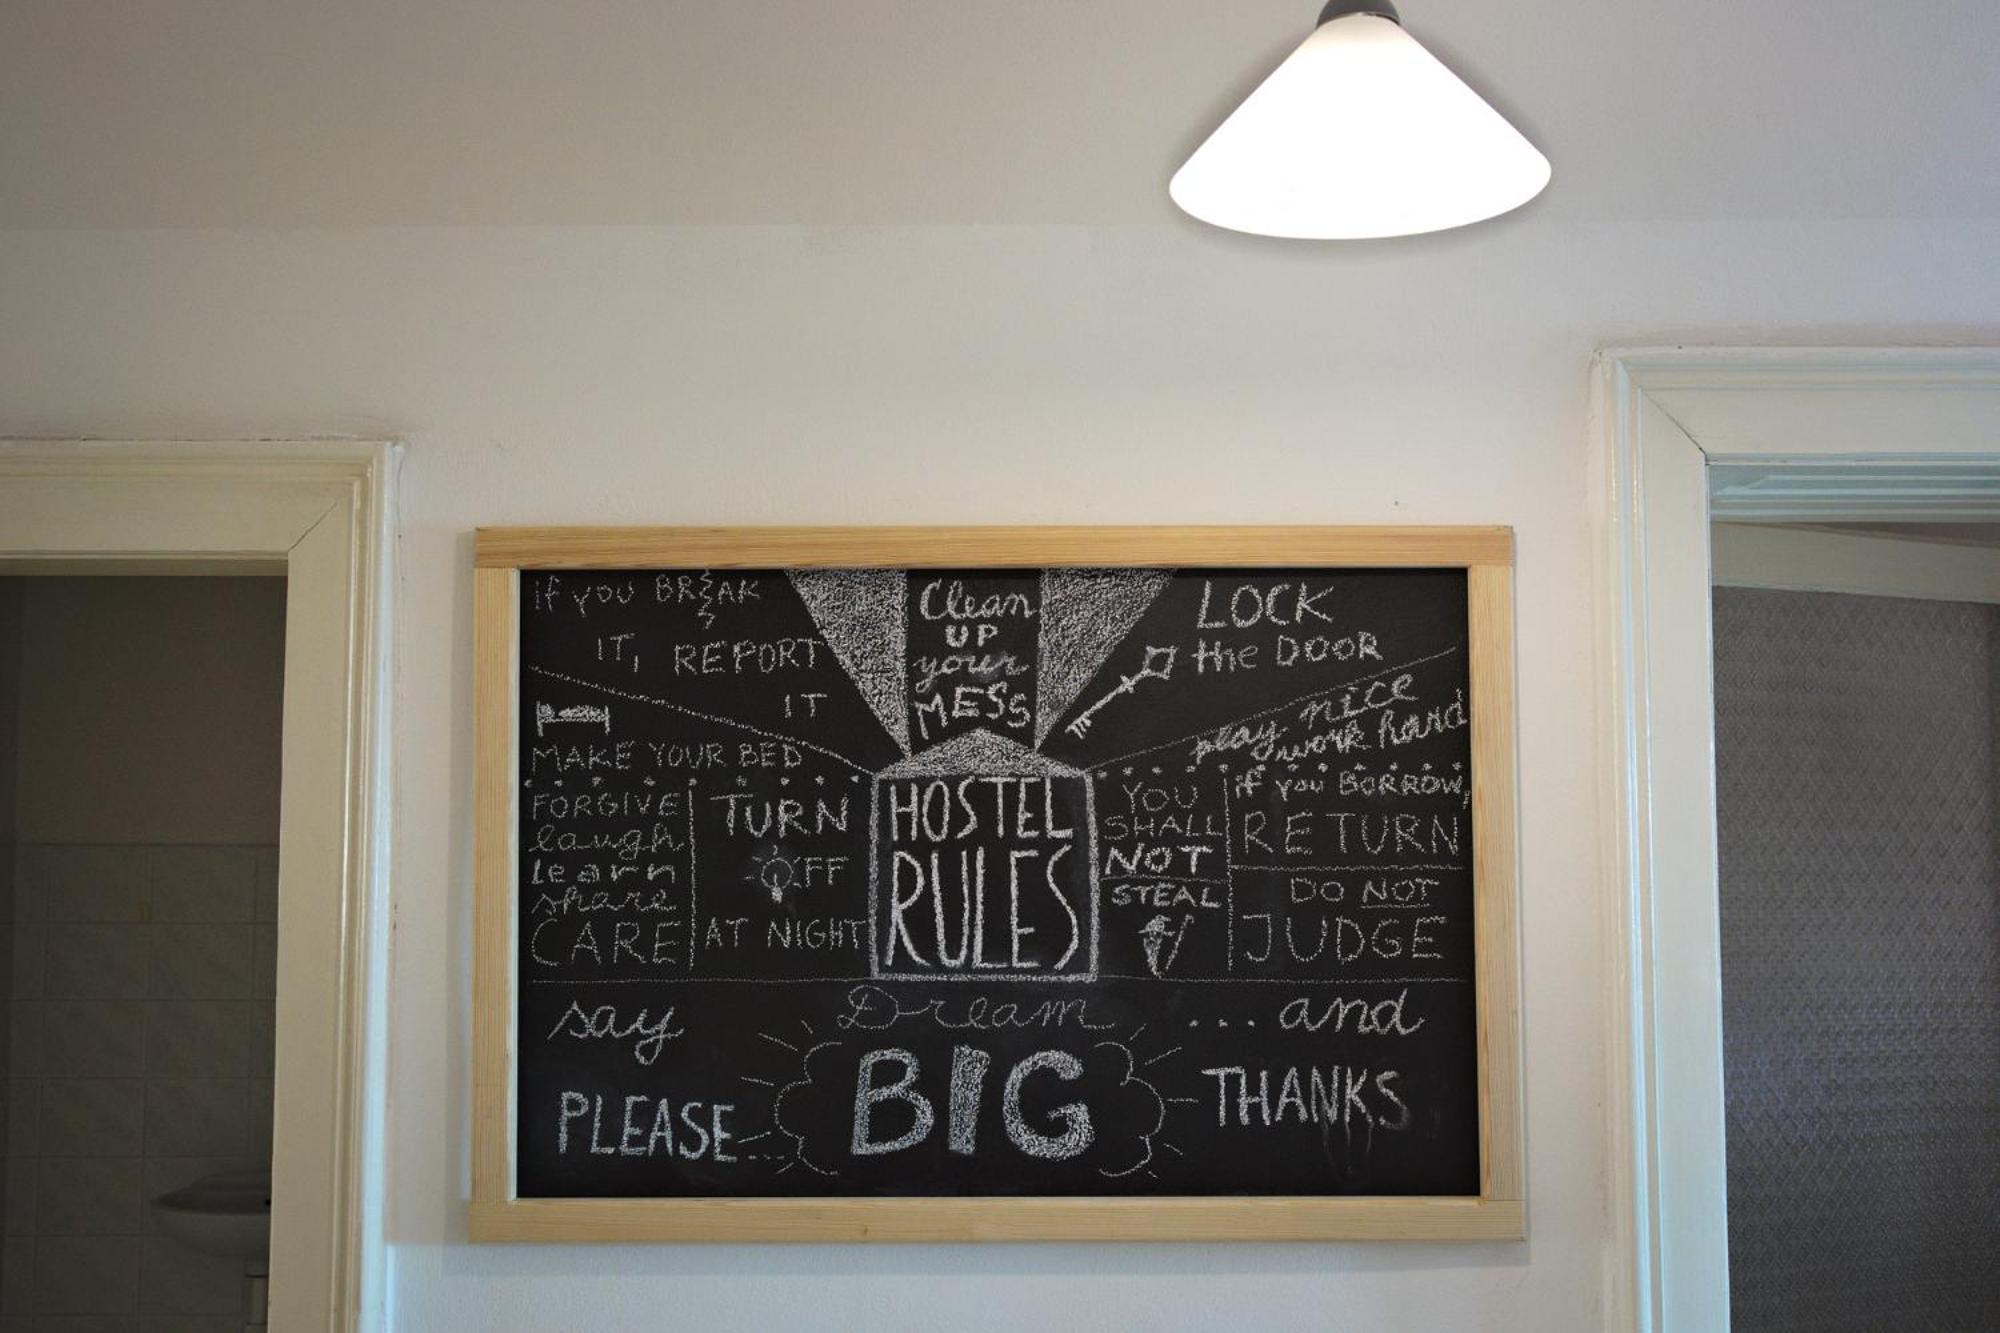 if you BREAK
IT, REPORT
IT
Clean
UP
your
MESS
LOCK
the DOOR
play nice
work hard
MAKE YOUR BED
FORGIVE
laugh
learn
share
CARE
TURN
OFF
AT NIGHT
HOSTEL
RULES
YOU
SHALL
NOT
STEAL
if you BORROW,
RETURN
DO NOT
JUDGE
say
PLEASE...
Dream
BIG
...and
THANKS